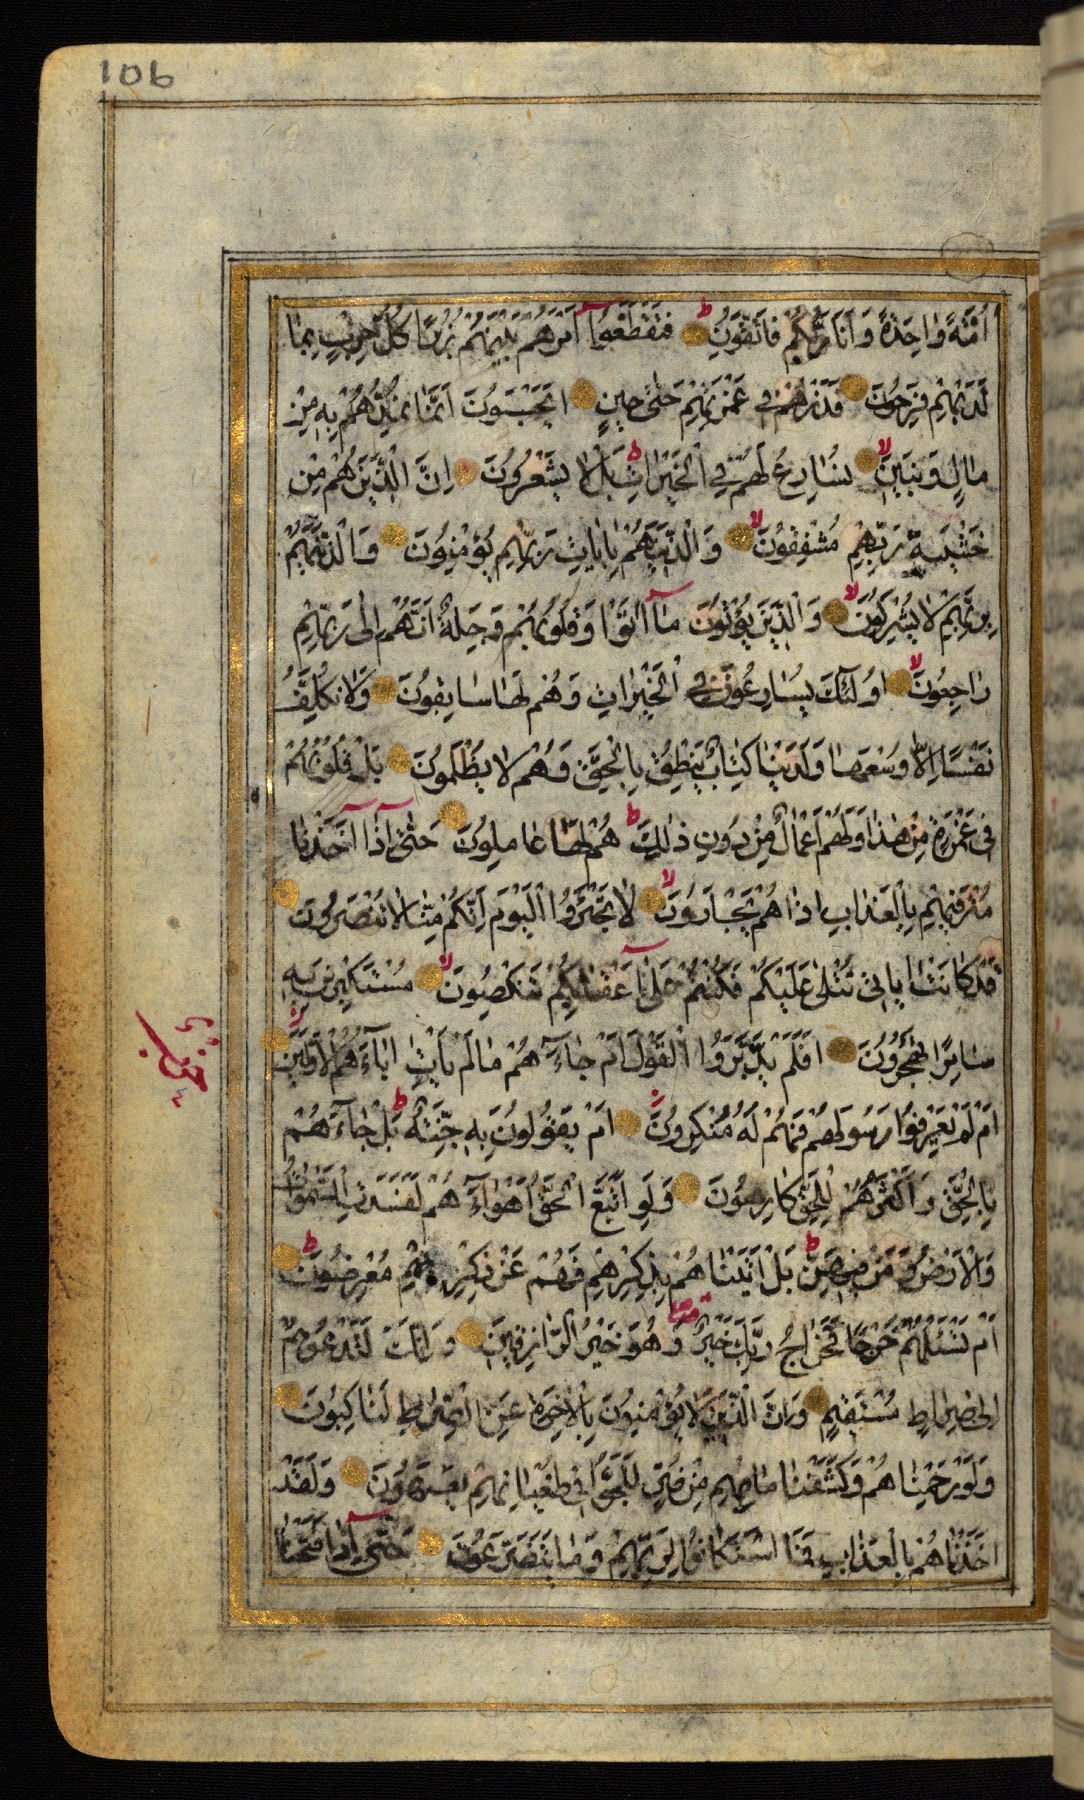 106
اُمَّةً وَاحِدَةً وَاَنَا رَبُّكُمْ فَاتَّقُونِ ط فَتَقَطَّعُوا اَمْرَهُمْ بَيْنَهُمْ زُبُرًا كُلُّ حِزْبٍ بِمَا
لَدَيْهِمْ فَرِحُونَ فَذَرْهُمْ فِي غَمْرَتِهِمْ حَتّٰى حِينٍ اَيَحْسَبُونَ اَنَّمَا نُمِدُّهُمْ بِهِ مِنْ
مَالٍ وَبَنِينَ لا نُسَارِعُ لَهُمْ فِي الْخَيْرَاتِ ط بَلْ لَا يَشْعُرُونَ اِنَّ الَّذِينَ هُمْ مِنْ
خَشْيَةِ رَبِّهِمْ مُشْفِقُونَ لا وَالَّذِينَ هُمْ بِاٰيَاتِ رَبِّهِمْ يُؤْمِنُونَ وَالَّذِينَ هُمْ
بِرَبِّهِمْ لَا يُشْرِكُونَ لا وَالَّذِينَ يُؤْتُونَ مَا اٰتَوْا وَقُلُوبُهُمْ وَجِلَةٌ اَنَّهُمْ اِلٰى رَبِّهِمْ
رَاجِعُونَ لا اُولٰئِكَ يُسَارِعُونَ فِي الْخَيْرَاتِ وَهُمْ لَهَا سَابِقُونَ وَلَا نُكَلِّفُ
نَفْسًا اِلَّا وُسْعَهَا وَلَدَيْنَا كِتَابٌ يَنْطِقُ بِالْحَقِّ وَهُمْ لَا يُظْلَمُونَ بَلْ قُلُوبُهُمْ
فِي غَمْرَةٍ مِنْ هٰذَا وَلَهُمْ اَعْمَالٌ مِنْ دُونِ ذٰلِكَ ط هُمْ لَهَا عَامِلُونَ حَتّٰى اِذَا اَخَذْنَا
مُتْرَفِيهِمْ بِالْعَذَابِ اِذَا هُمْ يَجْاَرُونَ لا لَا تَجْئَرُوا الْيَوْمَ اِنَّكُمْ مِنَّا لَا تُنْصَرُونَ
قَدْ كَانَتْ اٰيَاتِي تُتْلٰى عَلَيْكُمْ فَكُنْتُمْ عَلٰى اَعْقَابِكُمْ تَنْكِصُونَ لا مُسْتَكْبِرِينَ بِهِ
سَامِرًا تَهْجُرُونَ اَفَلَمْ يَدَّبَّرُوا الْقَوْلَ اَمْ جَاءَ هُمْ مَا لَمْ يَاْتِ اٰبَاءَهُمُ الْاَوَّلِينَ
اَمْ لَمْ يَعْرِفُوا رَسُولَهُمْ فَهُمْ لَهُ مُنْكِرُونَ اَمْ يَقُولُونَ بِهِ جِنَّةٌ ط بَلْ جَاءَ هُمْ
بِالْحَقِّ وَاَكْثَرُهُمْ لِلْحَقِّ كَارِهُونَ وَلَوِ اتَّبَعَ الْحَقُّ اَهْوَاءَ هُمْ لَفَسَدَتِ السَّمٰوَاتُ
وَالْاَرْضُ وَمَنْ فِيهِنَّ ط بَلْ اَتَيْنَاهُمْ بِذِكْرِهِمْ فَهُمْ عَنْ ذِكْرِهِمْ مُعْرِضُونَ ط
اَمْ تَسْئَلُهُمْ خَرْجًا فَخَرَاجُ رَبِّكَ خَيْرٌ وَهُوَ خَيْرُ الرَّازِقِينَ وَاِنَّكَ لَتَدْعُوهُمْ
اِلٰى صِرَاطٍ مُسْتَقِيمٍ وَاِنَّ الَّذِينَ لَا يُؤْمِنُونَ بِالْاٰخِرَةِ عَنِ الصِّرَاطِ لَنَاكِبُونَ
وَلَوْ رَحِمْنَاهُمْ وَكَشَفْنَا مَا بِهِمْ مِنْ ضُرٍّ لَلَجُّوا فِي طُغْيَانِهِمْ يَعْمَهُونَ وَلَقَدْ
اَخَذْنَاهُمْ بِالْعَذَابِ فَمَا اسْتَكَانُوا لِرَبِّهِمْ وَمَا يَتَضَرَّعُونَ حَتّٰى اِذَا فَتَحْنَا